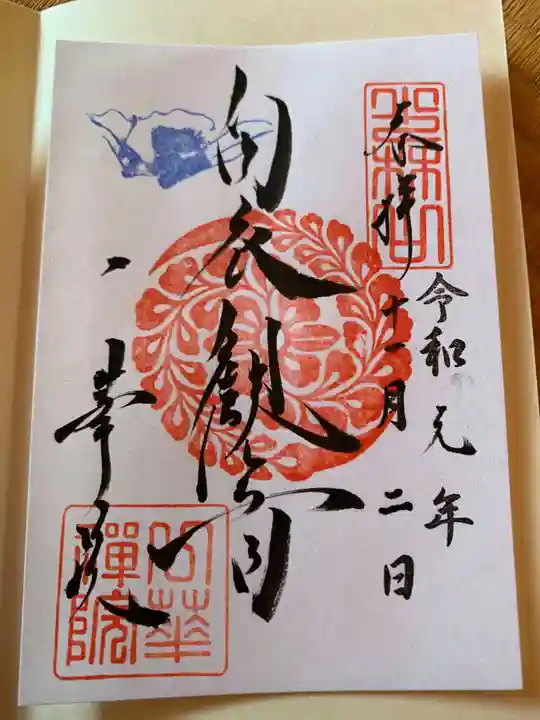 奉拝
令和元年
十一月二日
白衣観音
一華院
一華
禅院